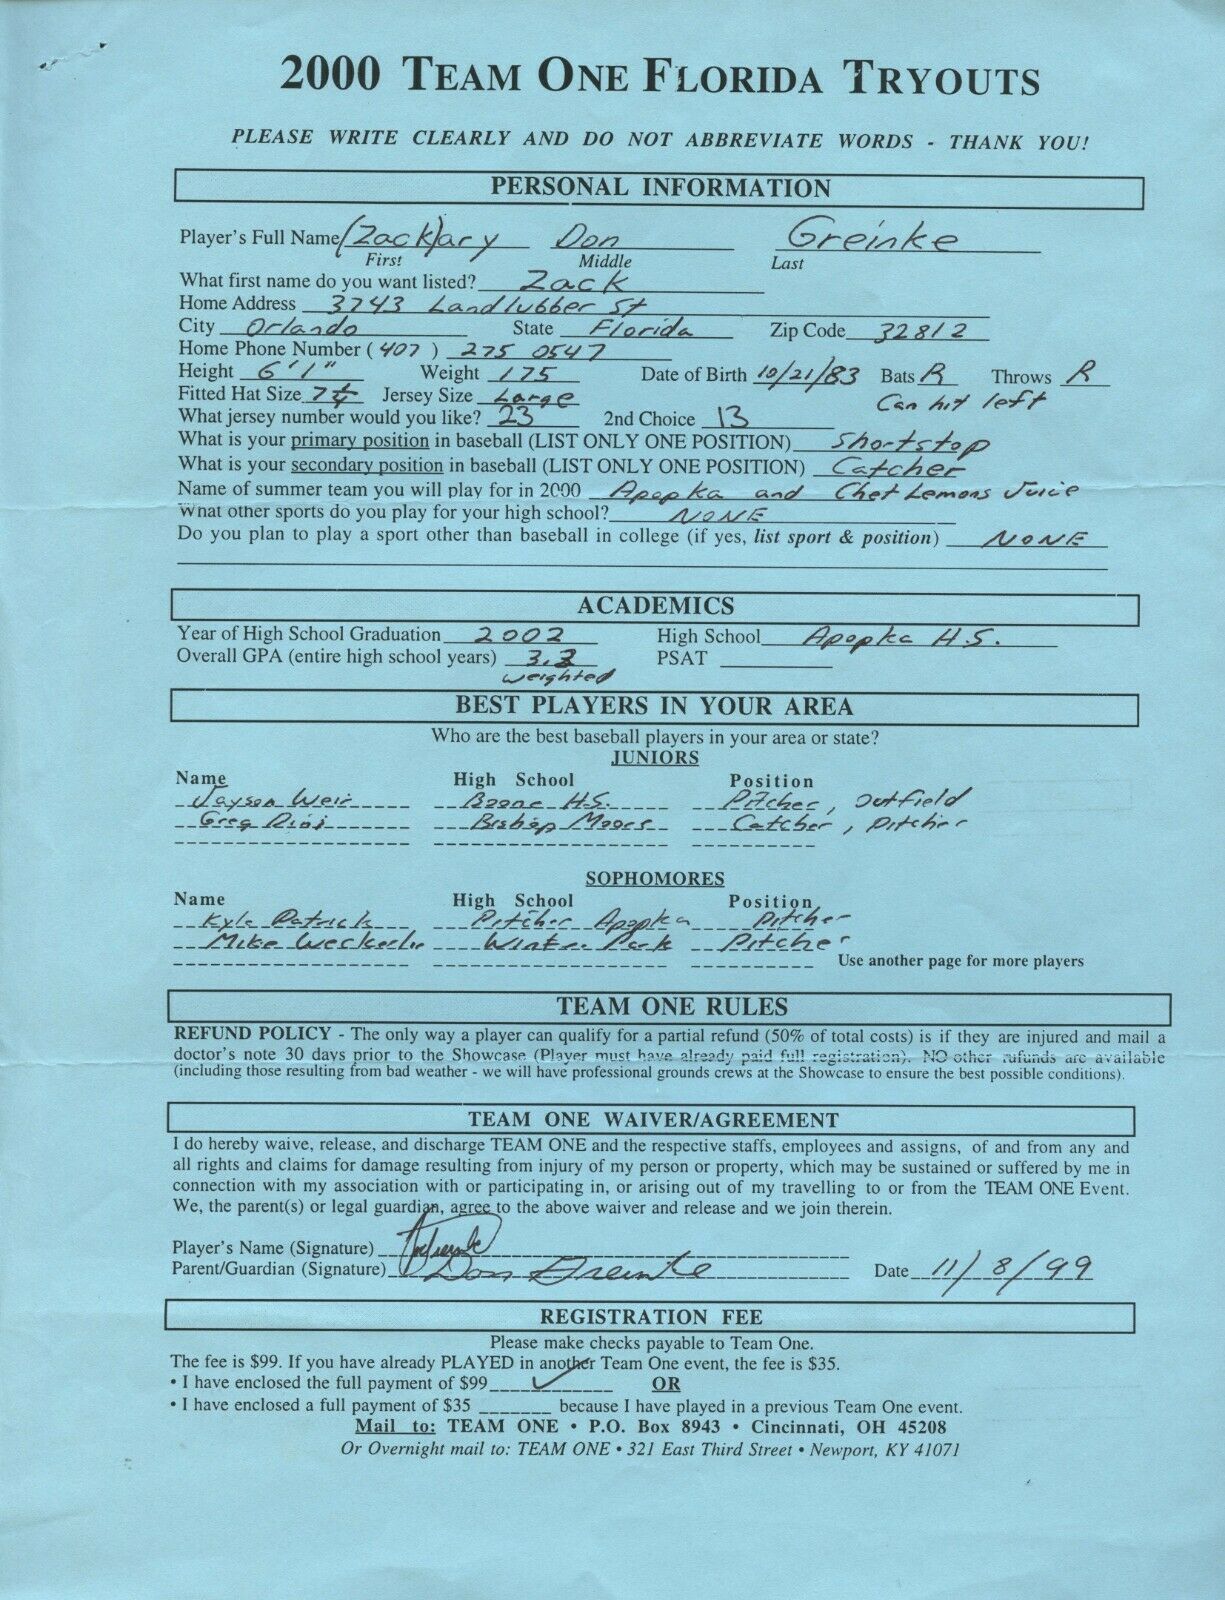 2000 TEAM ONE FLORIDA TRYOUTS
PLEASE WRITE CLEARLY AND DO NOT ABBREVIATE WORDS - THANK YOU!
PERSONAL INFORMATION
Player's Full Name (Zack)ary Don Greinke
First Middle Last
What first name do you want listed? Zack
Home Address 3743 Landlubber St
City Orlando State Florida Zip Code 32812
Home Phone Number (407) 275 0547
Height 6'1" Weight 175 Date of Birth 10/21/83 Bats R Throws R
Fitted Hat Size 7 1/4 Jersey Size Large Can hit left
What jersey number would you like? 23 2nd Choice 13
What is your primary position in baseball (LIST ONLY ONE POSITION) Shortstop
What is your secondary position in baseball (LIST ONLY ONE POSITION) Catcher
Name of summer team you will play for in 2000 Apopka and Chet Lemons Juice
What other sports do you play for your high school? NONE
Do you plan to play a sport other than baseball in college (if yes, list sport & position) NONE
ACADEMICS
Year of High School Graduation 2002 High School Apopka H.S.
Overall GPA (entire high school years) 3.3 PSAT
weighted
BEST PLAYERS IN YOUR AREA
Who are the best baseball players in your area or state?
JUNIORS
Name High School Position
Jayson Weir Boone H.S. Pitcher, outfield
Greg Bishop Moore Catcher, Pitcher
SOPHOMORES
Name High School Position
Kyle Patrick Pitcher Apopka Pitcher
Mike Winter Park Pitcher
Use another page for more players
TEAM ONE RULES
REFUND POLICY - The only way a player can qualify for a partial refund (50% of total costs) is if they are injured and mail a
doctor's note 30 days prior to the Showcase (Player must have already paid full registration). NO other rufunds are available
(including those resulting from bad weather - we will have professional grounds crews at the Showcase to ensure the best possible conditions).
TEAM ONE WAIVER/AGREEMENT
I do hereby waive, release, and discharge TEAM ONE and the respective staffs, employees and assigns, of and from any and
all rights and claims for damage resulting from injury of my person or property, which may be sustained or suffered by me in
connection with my association with or participating in, or arising out of my travelling to or from the TEAM ONE Event.
We, the parent(s) or legal guardian, agree to the above waiver and release and we join therein.
Player's Name (Signature)
Parent/Guardian (Signature) Don Greinke Date 11/8/99
REGISTRATION FEE
Please make checks payable to Team One.
The fee is $99. If you have already PLAYED in another Team One event, the fee is $35.
• I have enclosed the full payment of $99 ✓ OR
• I have enclosed a full payment of $35 because I have played in a previous Team One event.
Mail to: TEAM ONE • P.O. Box 8943 • Cincinnati, OH 45208
Or Overnight mail to: TEAM ONE • 321 East Third Street • Newport, KY 41071